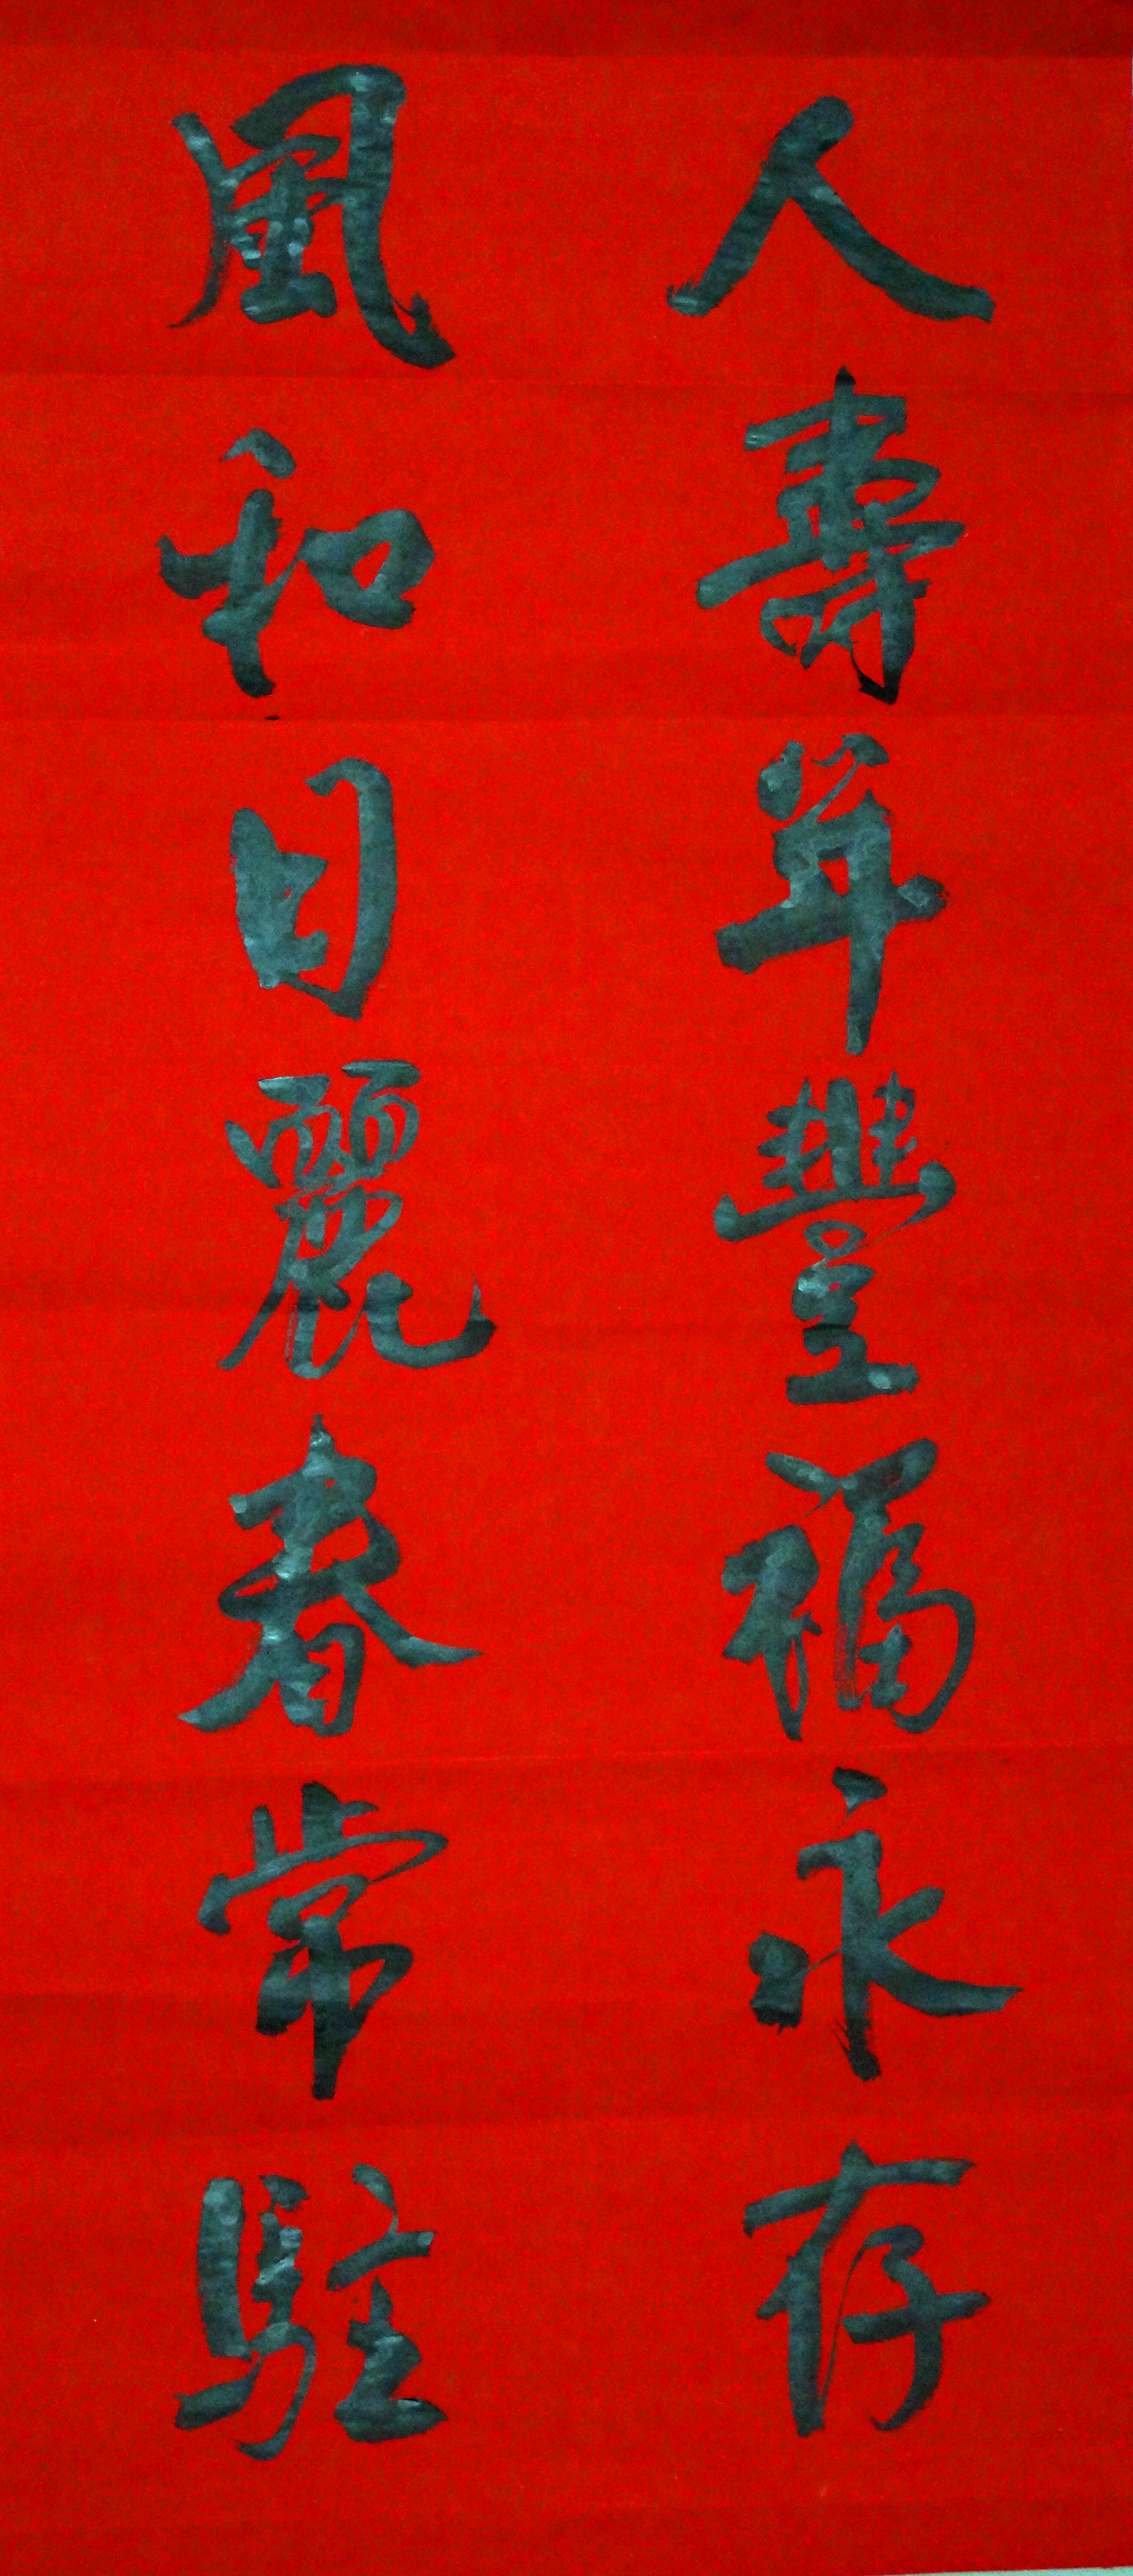 人壽年豐福永存
風和日麗春常駐